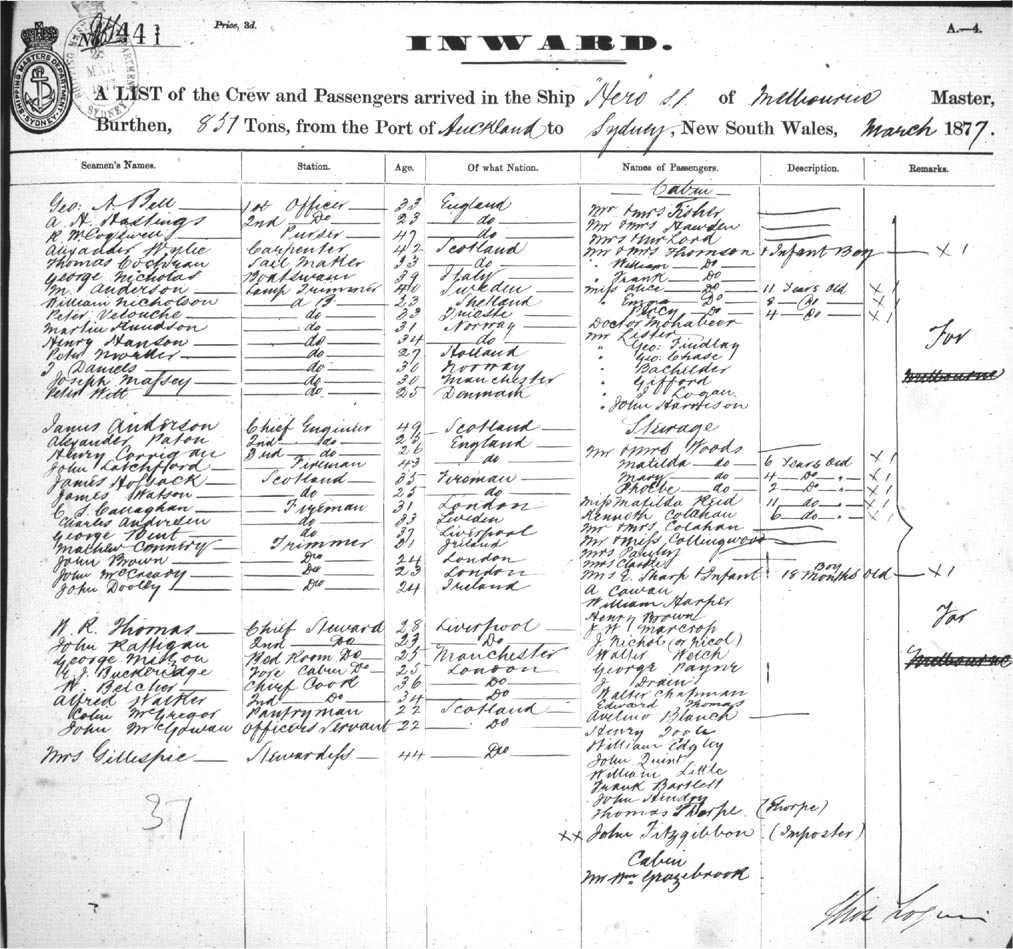 No 441
Price, 3d.
A.—4.
INWARD.
SHIPPING MASTERS DEPARTMENT SYDNEY
A LIST of the Crew and Passengers arrived in the Ship "Hero" s.s. of Melbourne Master,
Burthen, 851 Tons, from the Port of Auckland to Sydney, New South Wales, March 1877.
Seamen's Names. Station. Age. Of what Nation. Names of Passengers. Description. Remarks.
Cabin
Geo. A. Bell 1st Officer 33 England Mr & Mrs Fisher
A H Hastings 2nd Do 23 do Mr & Mrs Hawden
Purser 47 do Mrs & Mr Lord
Alexander Wylie Carpenter 42 Scotland Mr & Mrs Thomson & Infant Boy X 1
Thomas Cochran Sail Maker 33 do " William Do
George Nicholas Boatswain 39 Italy " Frank Do
M Anderson Lamp Trimmer 40 Sweden Miss Alice Do 11 Years Old X 1
William Nicholson A B 23 Shetland " Emma Do 8 Do X 1
Peter Velouche do 33 Trieste " Percy Do 4 Do X 1
Martin Knudson do 31 Norway Doctor Mohabeer
Henry Hanson do 34 do Mr Lister
Peter do 27 Holland " Geo. Findlay
J Daniels do 30 Norway " Geo. Chase
Joseph Massey do 30 Manchester " Bachelder
Peter Witt do 25 Denmark " Gifford
" J Logan
" John Harrison
For
Melbourne
Steerage
James Anderson Chief Engineer 49 Scotland
Alexander Paton 2nd do 25 England Mr & Mrs Woods
Henry Corrigan 3rd do 26 do Matilda do 6 Years Old X 1
John Latchfford Fireman 43 do Mary do 4 Do " X 1
James Scotland 35 Fireman Phoebe do 2 Do " X 1
James Watson do 25 do Miss Matilda Reid 11 do X 1
C S Callaghan Fireman 31 London Kenneth Colahan 6 do X 1
Charles Andersen do 33 Sweden Mr & Mrs Colahan
George Hunt do 37 Liverpool Mr & Miss Collingwood
Mathew Trimmer 21 Ireland Mrs
John Brown Do 24 London Mrs Clarke
John McCreary Do 23 London Mrs E. Sharp & Infant Boy 18 Months Old X 1
John Dooley Do 24 Ireland A Cowan
William Harper
Henry Brown
W. R. Thomas Chief Steward 28 Liverpool J W Marcrop
John Rattigan 2nd Do 23 Do J Nichol (or Nicol)
George Do 25 Manchester Walter Welch
E. J Buckeridge Fore Cabin Do 25 London George Payne
W. Belcher Chief Cook 36 Do J Drain
Alfred Walker 2nd Do 34 Do Walter Chapman
Colin McGregor Pantryman 22 Scotland Edward Thomas
John McGowan Officers Servant 22 Do Avelino Blanch
Henry Toole
Mrs Gillespie Stewardess 44 Do William Edgley
For
Melbourne
John Quint
William Little
Frank Bartlett
John Hendry
Thomas Tharpe (Thorpe)
XX John Fitzgibbon (Imposter)
37
Cabin
Mr Wm Grazebrook